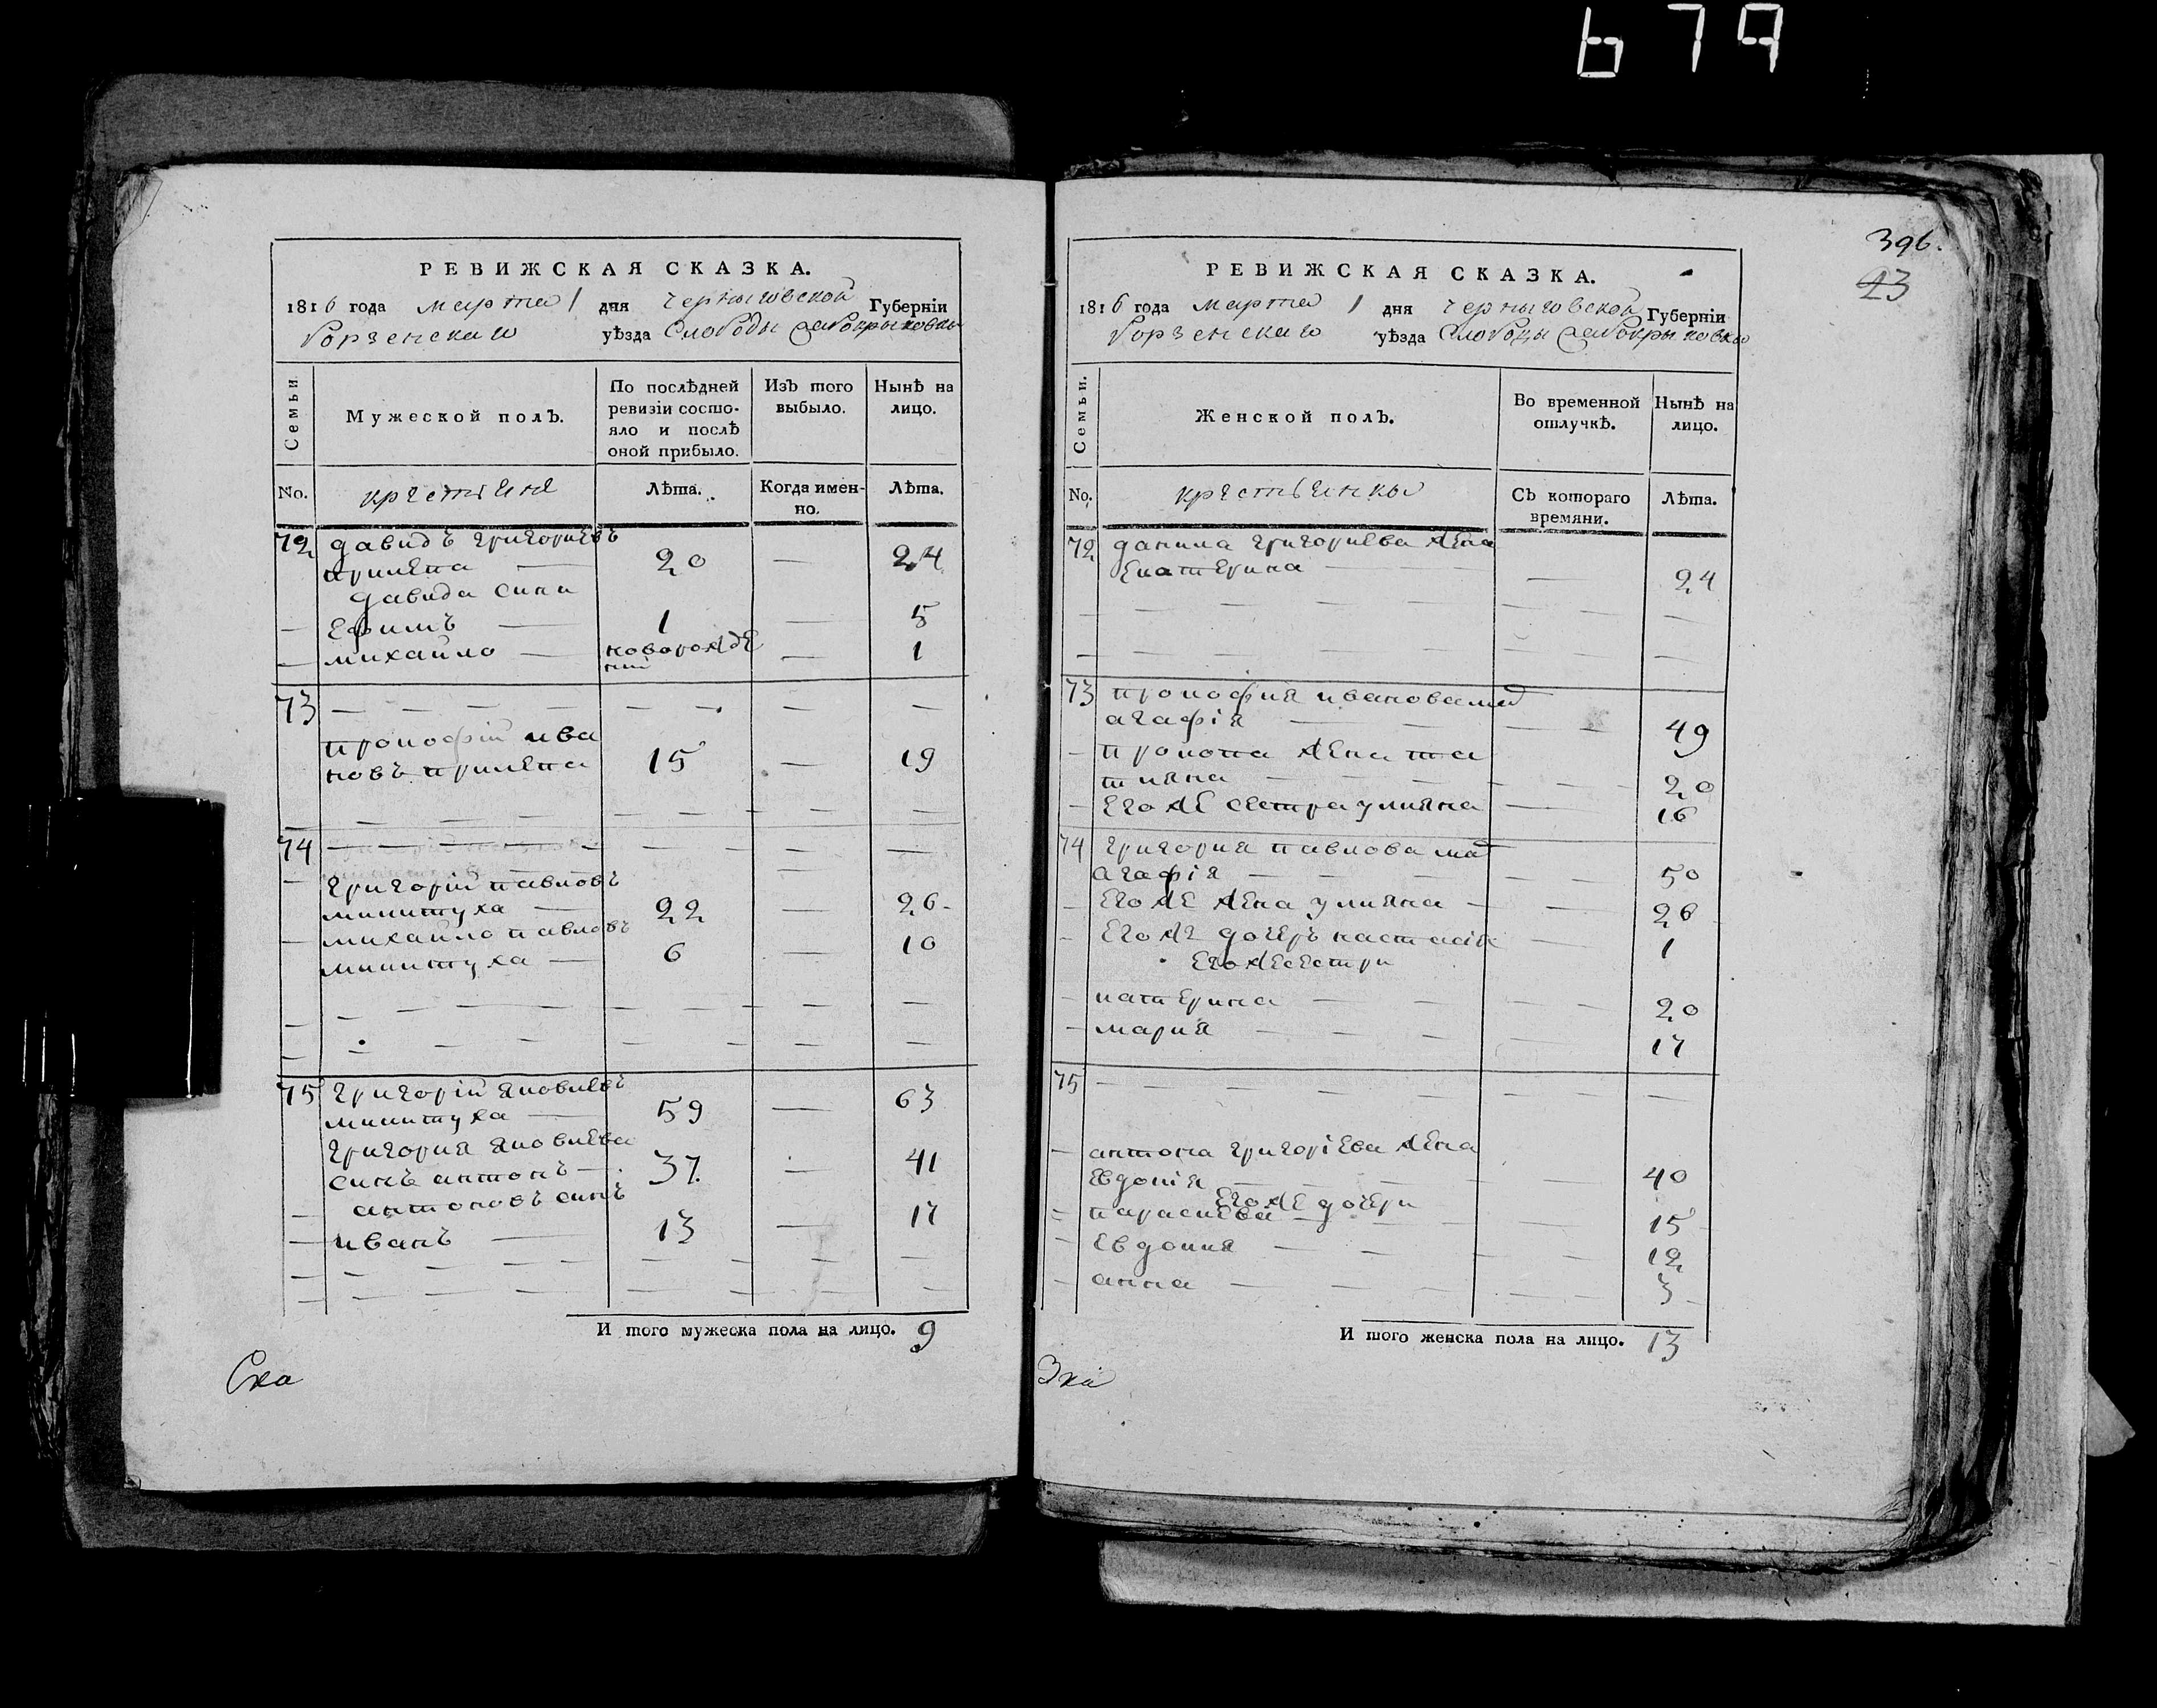 679
396.
23
РЕВИЖСКАЯ СКАЗКА.
1816 года марта 1 дня Черныговской Губерніи
Борзенскаго уѣзда Слободы
Семьи.
Мужеской полъ.
По послѣдней ревизіи состояло и послѣ оной прибыло.
Изъ того выбыло.
Нынѣ на лицо.
No. крестяне Лѣта. Когда именно. Лѣта.
72 давидъ григориевъ
прилепа — 20 — 24
давида сини
— ефимъ — 1 — 5
— михайло — новорожде
ний — 1
73 — — — — — — — —
прокофій ива
новъ прилепа 15 — 19
— — — — — — — — —
74 — — — — — — — —
— григорій павловъ
микитуха — 22 — 26
— михайло павловъ
микитуха — 6 — 10
— — — — — — — — —
— — — — — — — —
75 григорій яковлевъ
микитуха — 59 — 63
григория яковлева
синъ антонъ — 37. — 41
— антоновъ синъ
— иванъ — 13 — 17
— — — — — — — — —
— — — — — — — — —
И того мужеска пола на лицо. 9
Ска
РЕВИЖСКАЯ СКАЗКА.
1816 года марта 1 дня Черныговской Губерніи
Борзенскаго уѣзда Слободы
Семьи.
Женской полъ.
Во временной отлучкѣ.
Нынѣ на лицо.
No. крестьянки Съ котораго времяни. Лѣта.
72 григориева жена
екатерина — — 24
— — — — — — —
— — — — — — — —
73 прокофия иванова мат
агафія — — — 49
— прокопа жена та
тияна — — — — 20
— его же сестра улияна — 16
74 григория павлова мат
агафія — — — — 50
— его же жена улияна — — 26
— его же дочеръ настасія — 1
его же сестри
— катерина — — — — 20
— мария — — — — 17
75 — — — — — — —
— антона григоріева жена
евдокія — — — — — 40
его же дочери
= параскева — — — 15
— евдокия — — — — 12
— анна — — — — — 3
И того женска пола на лицо. 13